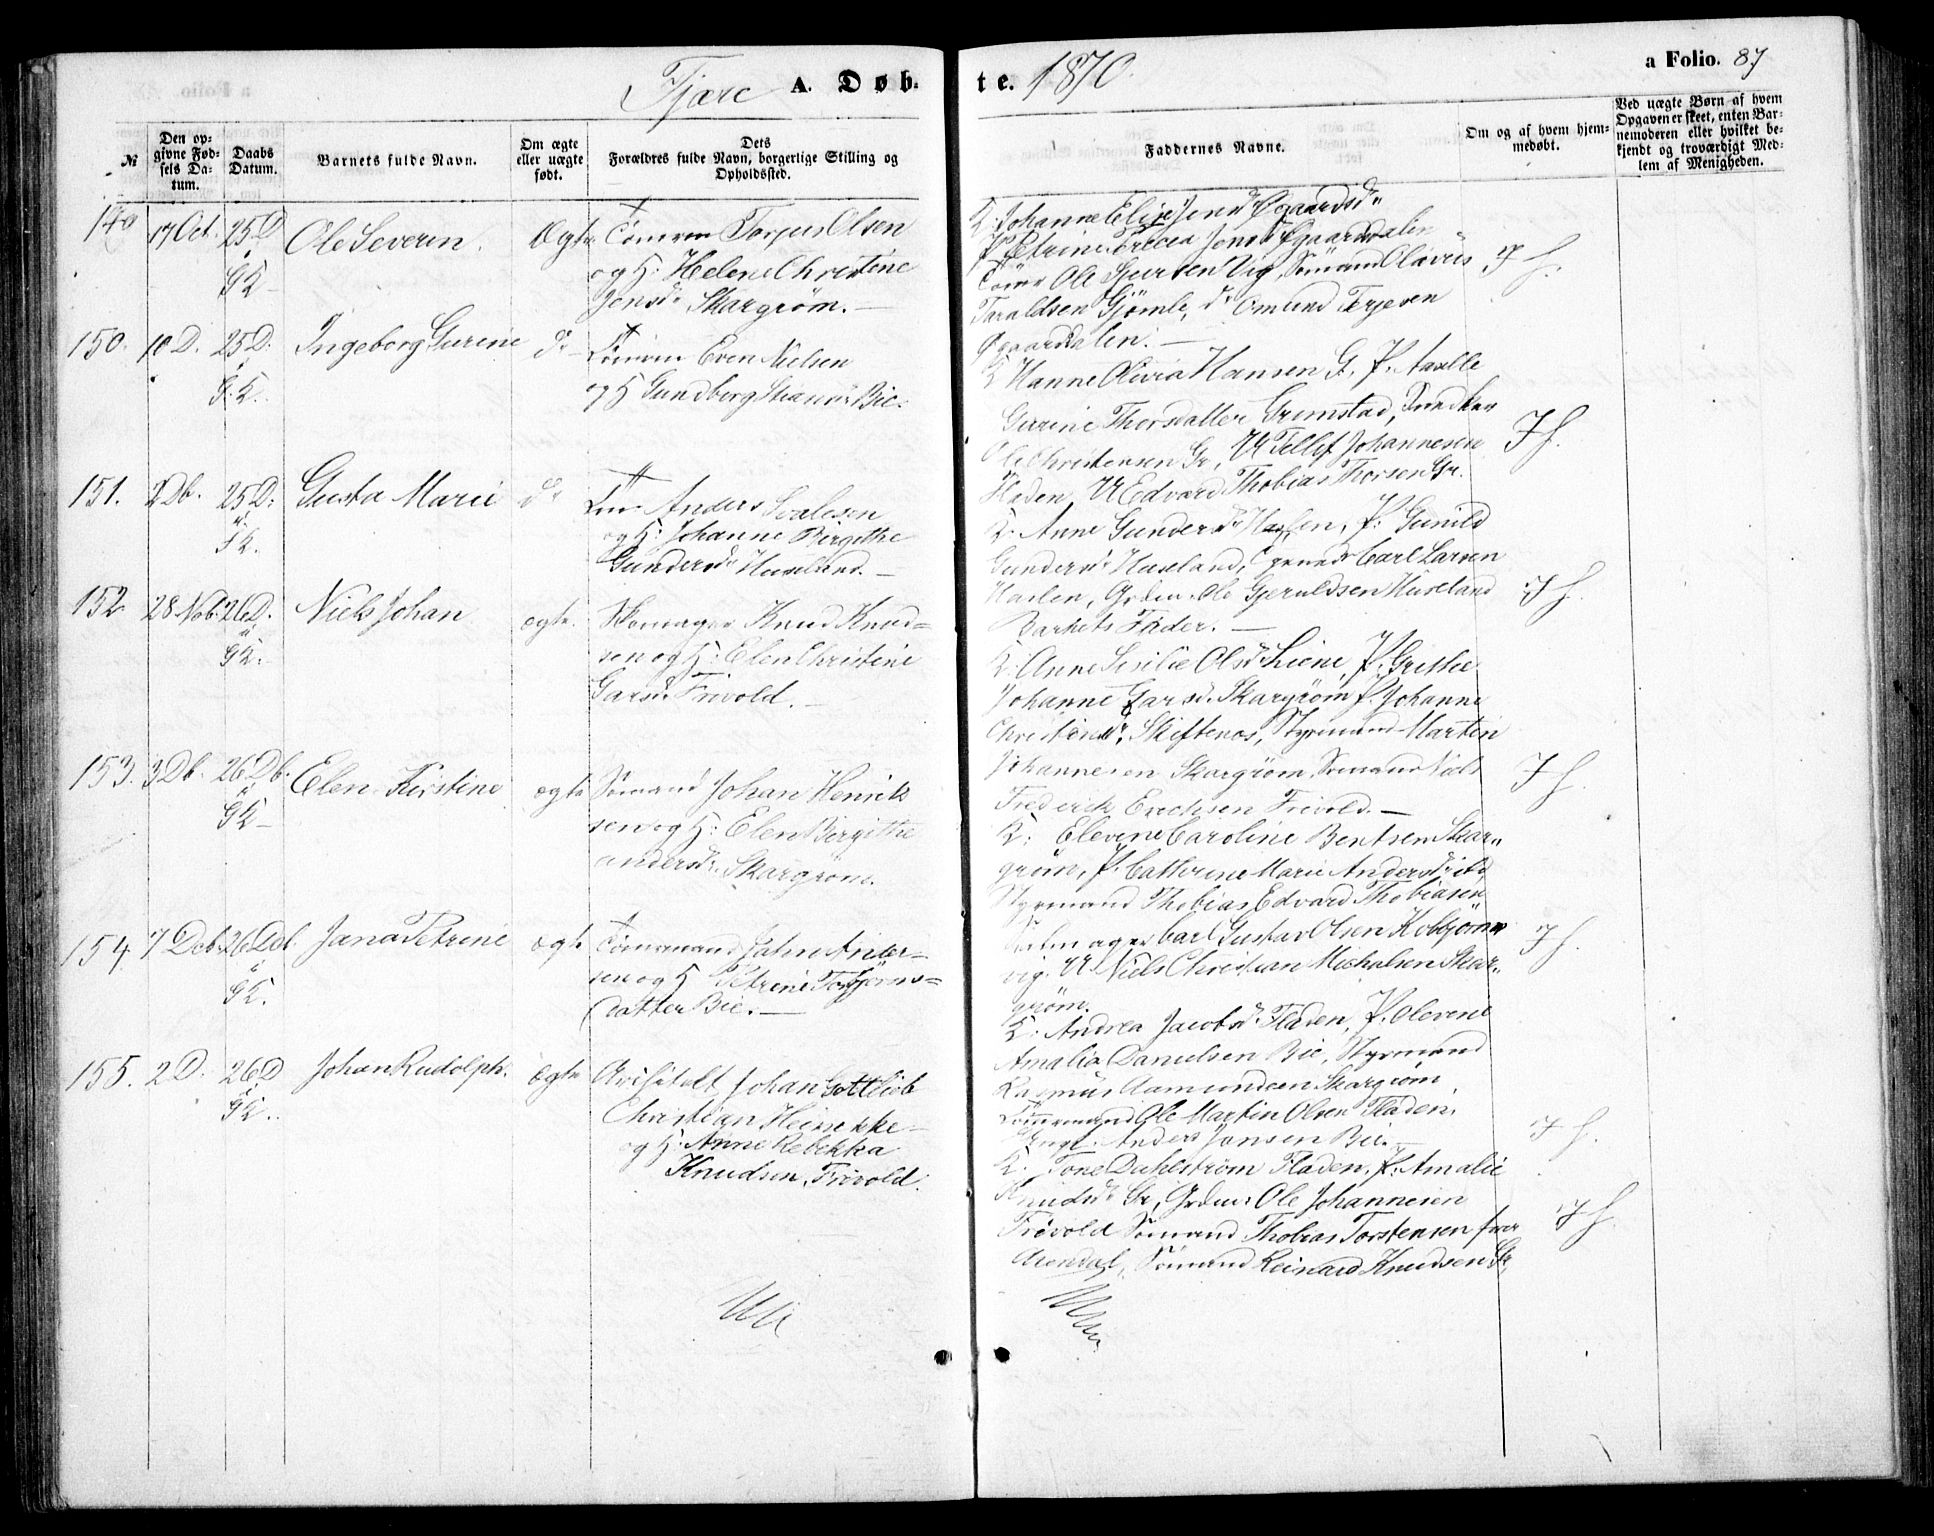 Fjære A. Døb-
te. 1870.
a Folio. 87
№
Den op-
givne Fød-
sels Da-
tum.
Daabs
Datum.
Barnets fulde Navn.
Om ægte
eller uægte
født.
Dets
Forældres fulde Navn, borgerlige Stilling og
Opholdssted.
Faddernes Navne.
Om og af hvem hjem-
medøbt.
Ved uægte Børn af hvem
Opgaven er skeet, enten Bar-
nemoderen eller hvilket be-
kjendt og troværdigt Med-
lem af Menigheden.
149 17 Oct. 25 D. GK. Ole Severin. Ægte Tømrm Torjus Olsen
og H: Helene Christine
Jensdr Skargrøm. —
K. Johanne Elise Jensdr Øgaardsd"
P. Petrine Jensdr Øgaardsdalen
Tømr Ole Sjursen Vig, Sømand Olavus
Taraldsen Gjømle, dr Omund Terjesen
Øgaardsdalen. —
150. 10 D. 25 D. GK. Ingeborg Gurine dr Tømrm Even Nielsen
og H Gundborg Bie.
K Hanne Olivia Hansen G. P. Aaselle
Gurine Thorsdatter Grimstad, Snedker
Ole Christensen Gr, U Tellef Johannesen
Fladen, U Edvard Thobias Thorsen Gr.
151. 2 Db. 25 D. FK. Gusta Marie dr Anders Evalesen
og H. Johanne Birgithe
Gundersdr Haseland. —
K. Anne Gundersdr Haslen, P. Gunild
Gundersdr Haseland, Carl Larsen
Haslen, Grdm. Ole Gjeruldsen Haseland
Barnets Fader. —
152 28 Nob. 26 D. GK. Niels Johan ægte. Skomager Knud Knud=
sen og H: Elen Christine
Larsdr Frivold. —
K. Anne Sesilie Olsdr Liene, P. Grethe
Johanne Larsd. Skargrøm P. Johanne
Skiftenes, Styrmand Martin
Johannesen Skargrøm, Sømand Niels
Frederick Erichsen Frivold. —
153. 3 Db. 26 Db. GK — Elen Kirstine ægte Sømand Johan Henrik
sen og H: Elen Birgithe
Andersdr. Skargrøm.
K: Elevine Caroline Bentsen Skar"
grøm, P. Cathrine Marie Andersdr ibd
Styrmand Thobias Edvard Thobiasen
Carl Gustav Olsen Kolbjørns
vig. U. Niels Christian Michelsen Skar"
grøm.
154. 7 Deb. 26 Deb. GK. Jana Petrine ægte Tømmermand Jahn Ander—
sen og H Petrine Torbjørns=
datter Bie. —
K. Andrea Jacobsdr Fladen, P. Olevine
Amalia Danielsen Bie, Styrmand
Rasmus Aamundsen Skargrøm,
Tømermand Ole Martin Olsen Fladen,
Ungk. Anders Jensen Bie. —
155. 2 D. 26 D GK. Johan Rudolph. Ægte Johan Gottliob
Christian Heinekke—
og H. Anne Rebekka
Knudsen, Frivold.
K. Tone Dahlstrøm Fladen, P. Amalie
Knudsdr Gr, Grdm. Ole Johannesen
Frivold Sømand Thobias Torstensen fra
Arendal, Sømand Reinard Knudsen Gr.